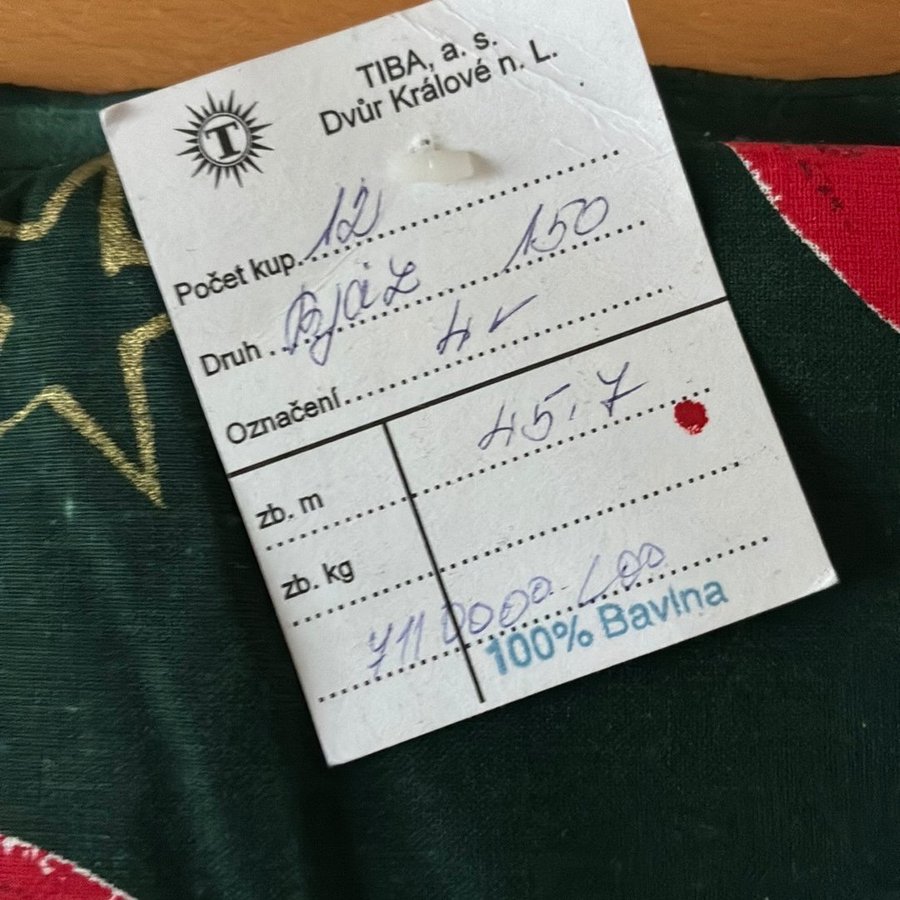 TIBA, a. s.
Dvůr Králové n. L.
T
Počet kup. 12
Druh Bjáz 150
Označení 4
zb. m 45.7
zb. kg
100% Bavlna